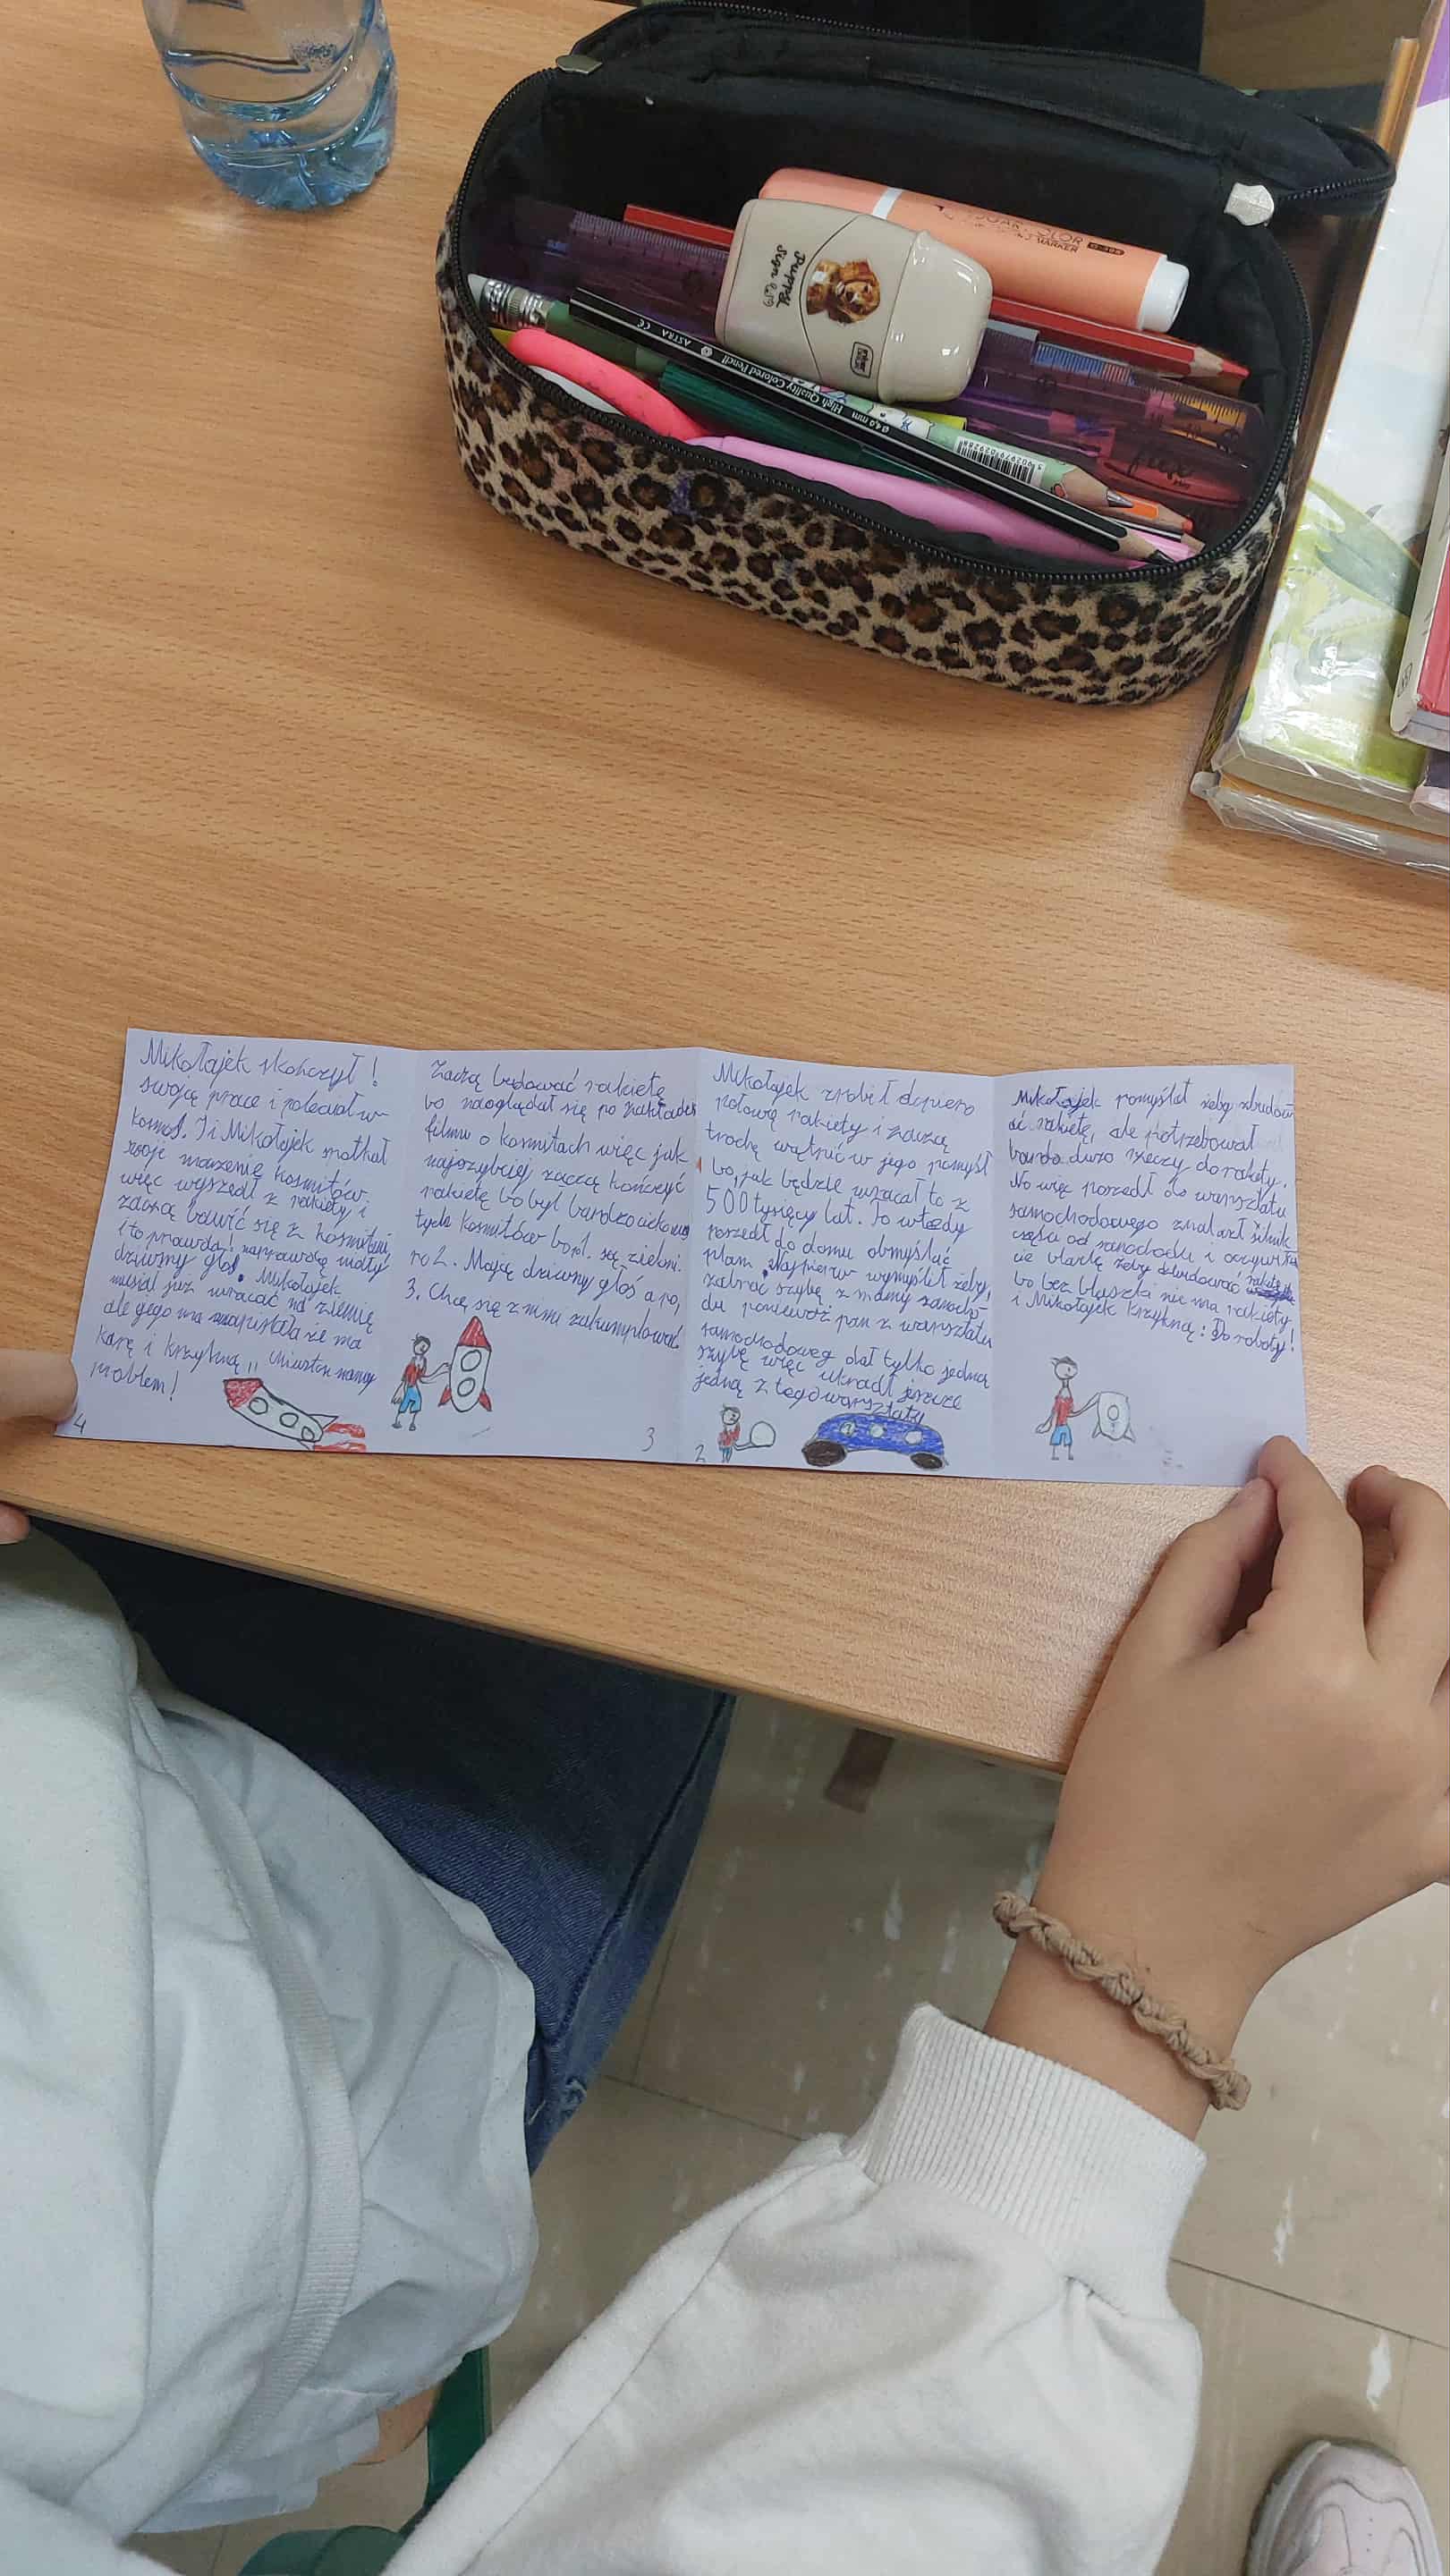 Puppy
Sign
inter
MARKER
ASTRA
High Quality Colored Pencil
ø 4,0 mm
CE
flexi
Mikołajek skończył!
swoją pracę i poleciał w
kosmos. I i Mikołajek spotkał
swoje marzenie kosmitów
więc wyszedł z rakiety i
zaczą bawić się z kosmitami
i to prawda! naprawdę miały
dziwny głos. Mikołajek
musiał już wracać na ziemię
ale jego ma
karę i krzykną „ Hiuston mamy
problem!
4
Zaczą budować rakietę
bo naoglądał się po
filmu o kosmitach więc jak
najszybciej zaczą kończyć
rakietę bo był bardzo ciekawy
tych kosmitów bo 1. są zieloni.
2. Mają dziwny głos a po,
3. Chcę się z nimi zakumplować.
3
Mikołajek zrobił dopiero
połowę rakiety i zaczą
trochę wątpić w jego pomysł
bo, jak będzie wracał to z
500 tysięcy lat. To wtedy
poszedł do domu obmyślać
plam. Najpierw wymyślił żeby,
zabrać szybę z mamy samocho-
du ponieważ pan z warsztatu
samochodoweg dał tylko jedną
szybę więc ukradł jeszcze
jedną z tego warsztatu
2
Mikołajek pomyślał żeby zbudow
ać rakietę, ale potrzebował
bardo dużo rzeczy do rakiety.
No więc poszedł do warsztatu
samochodowego znalazł silnik
części od samochodu i oczywiś
cie blachę żeby zbudować rakietę
bo bez blaszki nie ma rakiety
i Mikołajek krzykną: Do roboty!